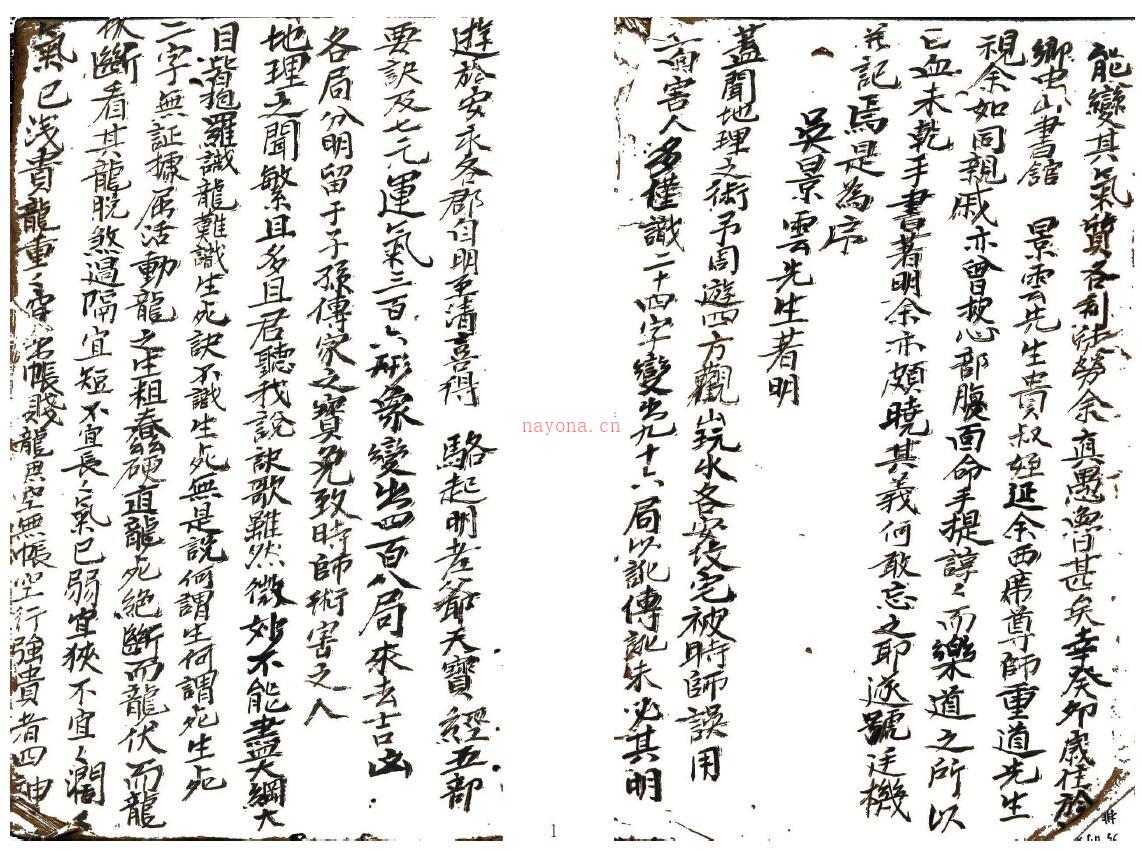 能變其氣質各利徒勞余真愚魯甚矣幸癸卯歲往於
鄉中山書館　景雲先生貴叔姪延余西席尊師重道先生
視余如同親戚亦曾披心部腹面命手提諄々而樂道之所以
已血未乾手書著明余亦頗曉其義何敢忘之耶遂號廷機
記焉是為序
吳景雲先生著明
蓋聞地理之術予周遊四方觀山玩水各安役宅被時師誤用
害人多僅識二十四字變出九十六局以訛傳訛未必其明
遊於安永各郡自明至清喜得　駱起明老爺天寶經五部
要訣及七元運氣三百六形象變出四百八局來去吉凶
各局分明留于子孫傳家之寶免致時師術害之人
地理之聞繁且多且君聽我說訣歌雖然微妙不能盡大綱大
目皆抱羅識龍難識生死訣不識生死無是說何謂生何謂死生死
二字無証據居活動龍之生粗蠢硬直龍死絕斷而龍伏而龍
斷看其龍脫煞過隔宜短不宜長々氣已弱宜狹不宜々濶々
氣已淺貴龍重々穿出帳賤龍思空無帳空行強貴者四申
nayona.cn
1